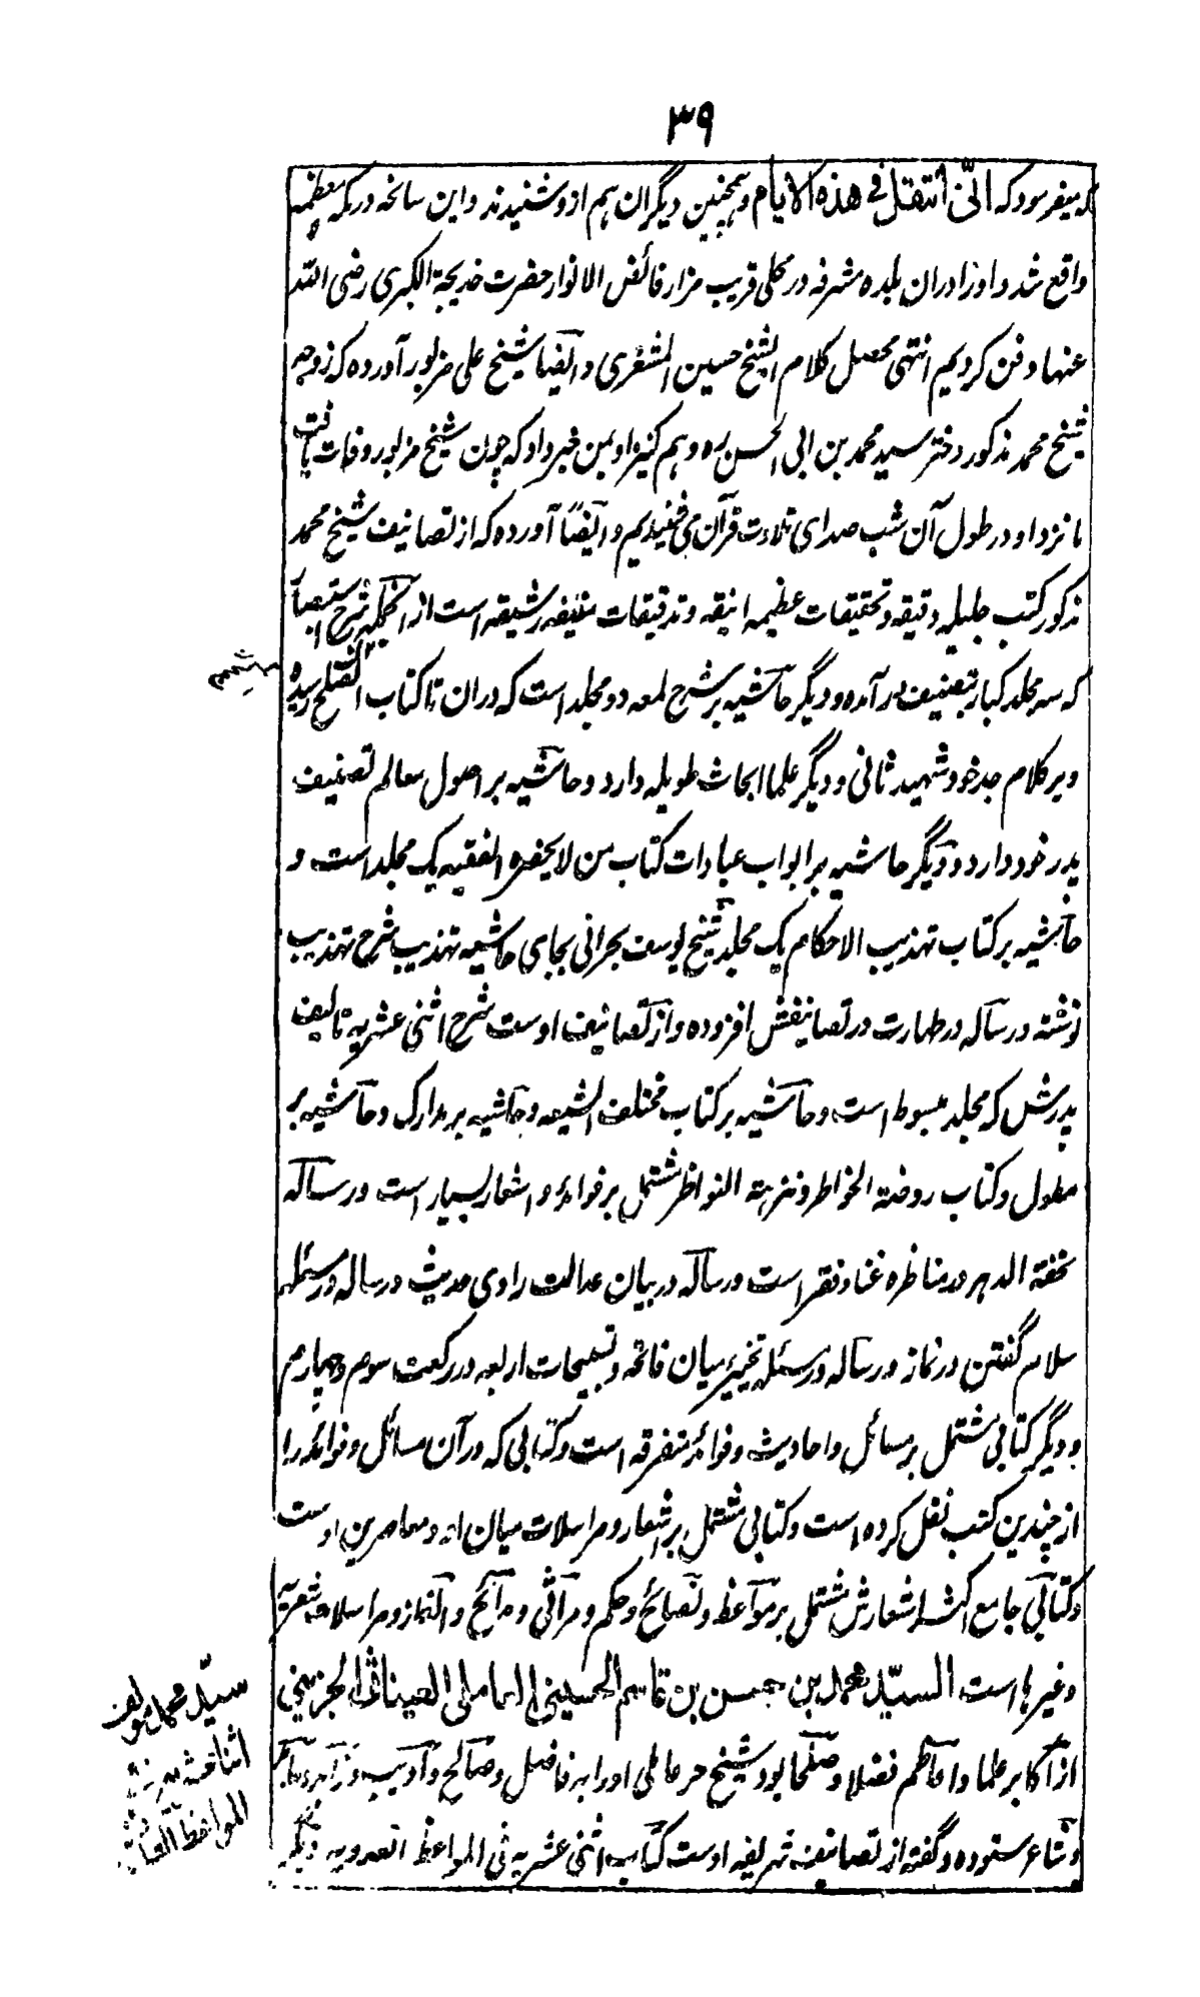 ۳۹
که میفرمود که انّی انتقل فی هذه الایام و همچنین دیگران هم ازو شنیدند و این سانحه در مکه معظمه
واقع شد و او را دران بلده مشرفه در محلی قریب مزار فائض الانوار حضرت خدیجة الکبری رضی الله
عنها دفن کردیم انتهی محصل کلام الشیخ حسین المشغری و ایضا شیخ علی مزبور آورده که زوجه
شیخ محمد مذکور دختر سید محمد بن ابی الحسن ره و هم کنیز او بمن خبر داد که چون شیخ مزبور وفات یافت
ما نزد او در طول آن شب صدای تلاوت قرآن می شنیدیم و ایضًا آورده که از تصانیف شیخ محمد
مذکور کتب جلیله دقیقه و تحقیقات عظیمه انیقه و تدقیقات منیفه رشیقه است از انجمله شرح استبصار
که سه مجلد کبار بتصنیف در آمده و دیگر حاشیه بر شرح لمعه دو مجلد است که دران تا کتاب الصلح رسیده
و بر کلام جد خود شهید ثانی و دیگر علما ابحاث طویله دارد و حاشیه بر اصول معالم تصنیف
پدر خود دارد و دیگر حاشیه بر ابواب عبادات کتاب من لا یحضره الفقیه یک مجلد است و
حاشیه بر کتاب تهذیب الاحکام یک مجلد شیخ یوسف بحرانی بجای حاشیه تهذیب شرح تهذیب
نوشته و رساله در طهارت در تصانیفش افزوده و از تصانیف اوست شرح اثنی عشریه تالیف
پدرش که مجلد مبسوط است و حاشیه بر کتاب مختلف الشیعه و حاشیه بر مدارک و حاشیه بر
مطول و کتاب روضة الخواطر و نزهة النواظر مشتمل بر فوائد و اشعار بسیار است و رساله
تحفة الدهر در مناظره غنا و فقر است و رساله در بیان عدالت راوی حدیث و رساله در مسئله
سلام گفتن در نماز و رساله در مسئله تخییر میان فاتحه و تسبیحات اربعه در رکعت سوم و چهارم
و دیگر کتابی مشتمل بر مسائل و احادیث و فوائد متفرقه است و کتابی که در آن مسائل و فوائد را
از چندین کتب نقل کرده است و کتابی مشتمل بر اشعار و مراسلات میان او و معاصرین اوست
و کتابی جامع اکثر اشعارش مشتمل بر مواعظ و نصائح و حکم و مراثی و مدائح و الغاز و مراسلات شعریه
و غیرها است السیّد محمد بن حسن بن قاسم الحسینی العاملی العیناثی الجزینی
از اکابر علما و اعاظم فضلا و صلحا بود شیخ حر عاملی او را بفاضل و صالح و ادیب و زاهد و عابد
و شاعر ستوده و گفته از تصانیف شریفه اوست کتاب اثنی عشریه فی المواعظ العددیه و دیگر
سیّد محمد مولف
اثنا عشریه فی
المواعظ العددیه